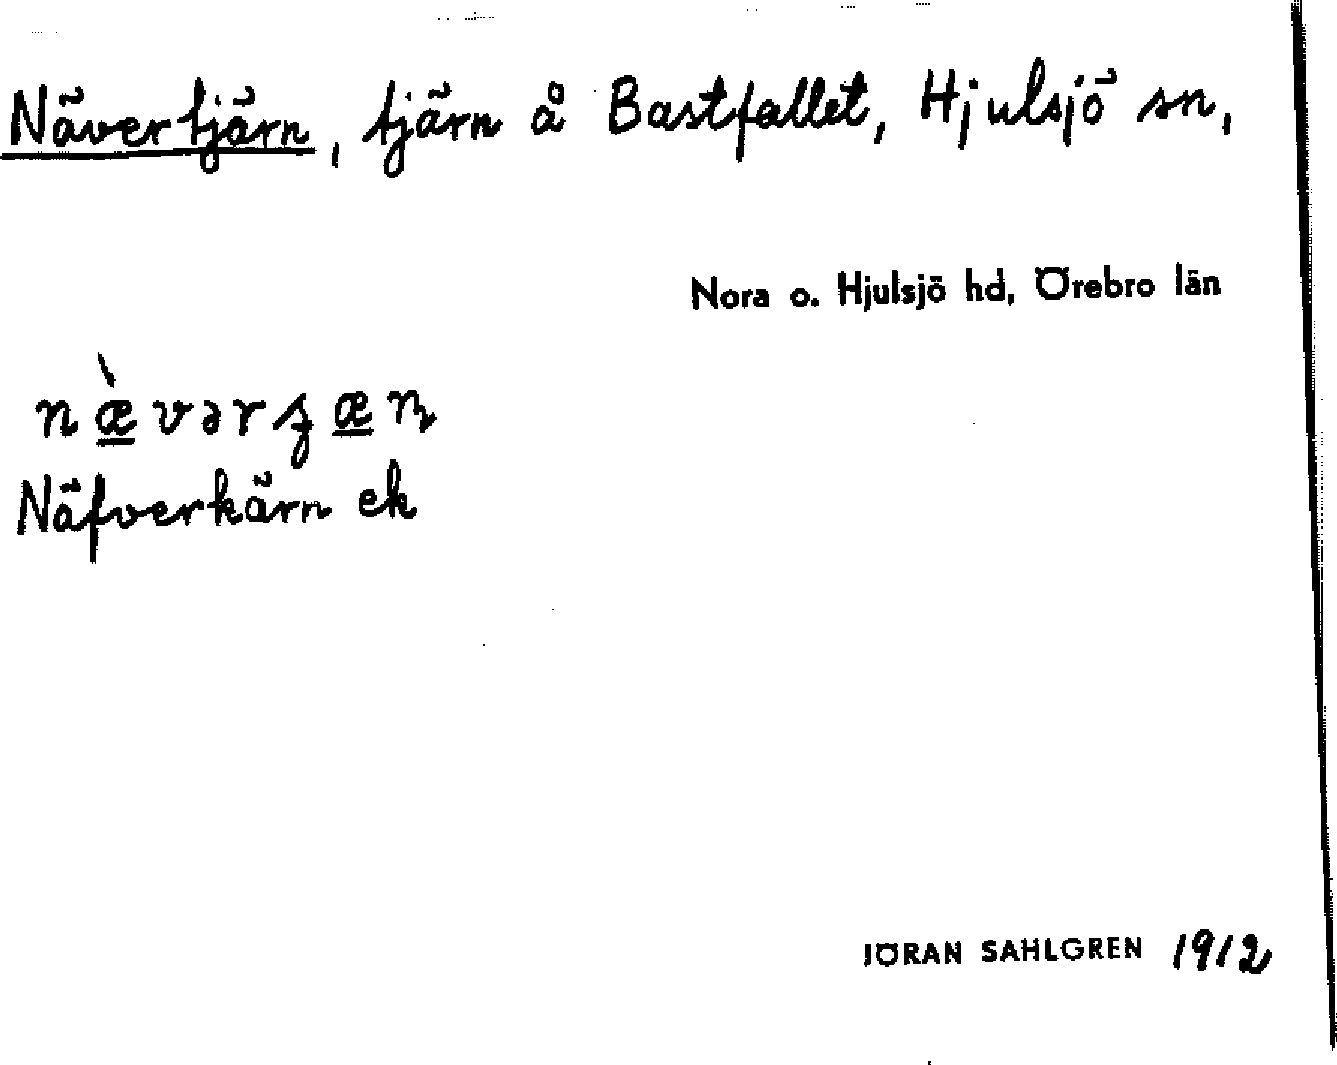 Nävertjärn, tjärn å Bastfallet, Hjulsjö sn,
Nora o. Hjulsjö hd, Örebro län
Näfverkärn ek
JÖRAN SAHLGREN 1912